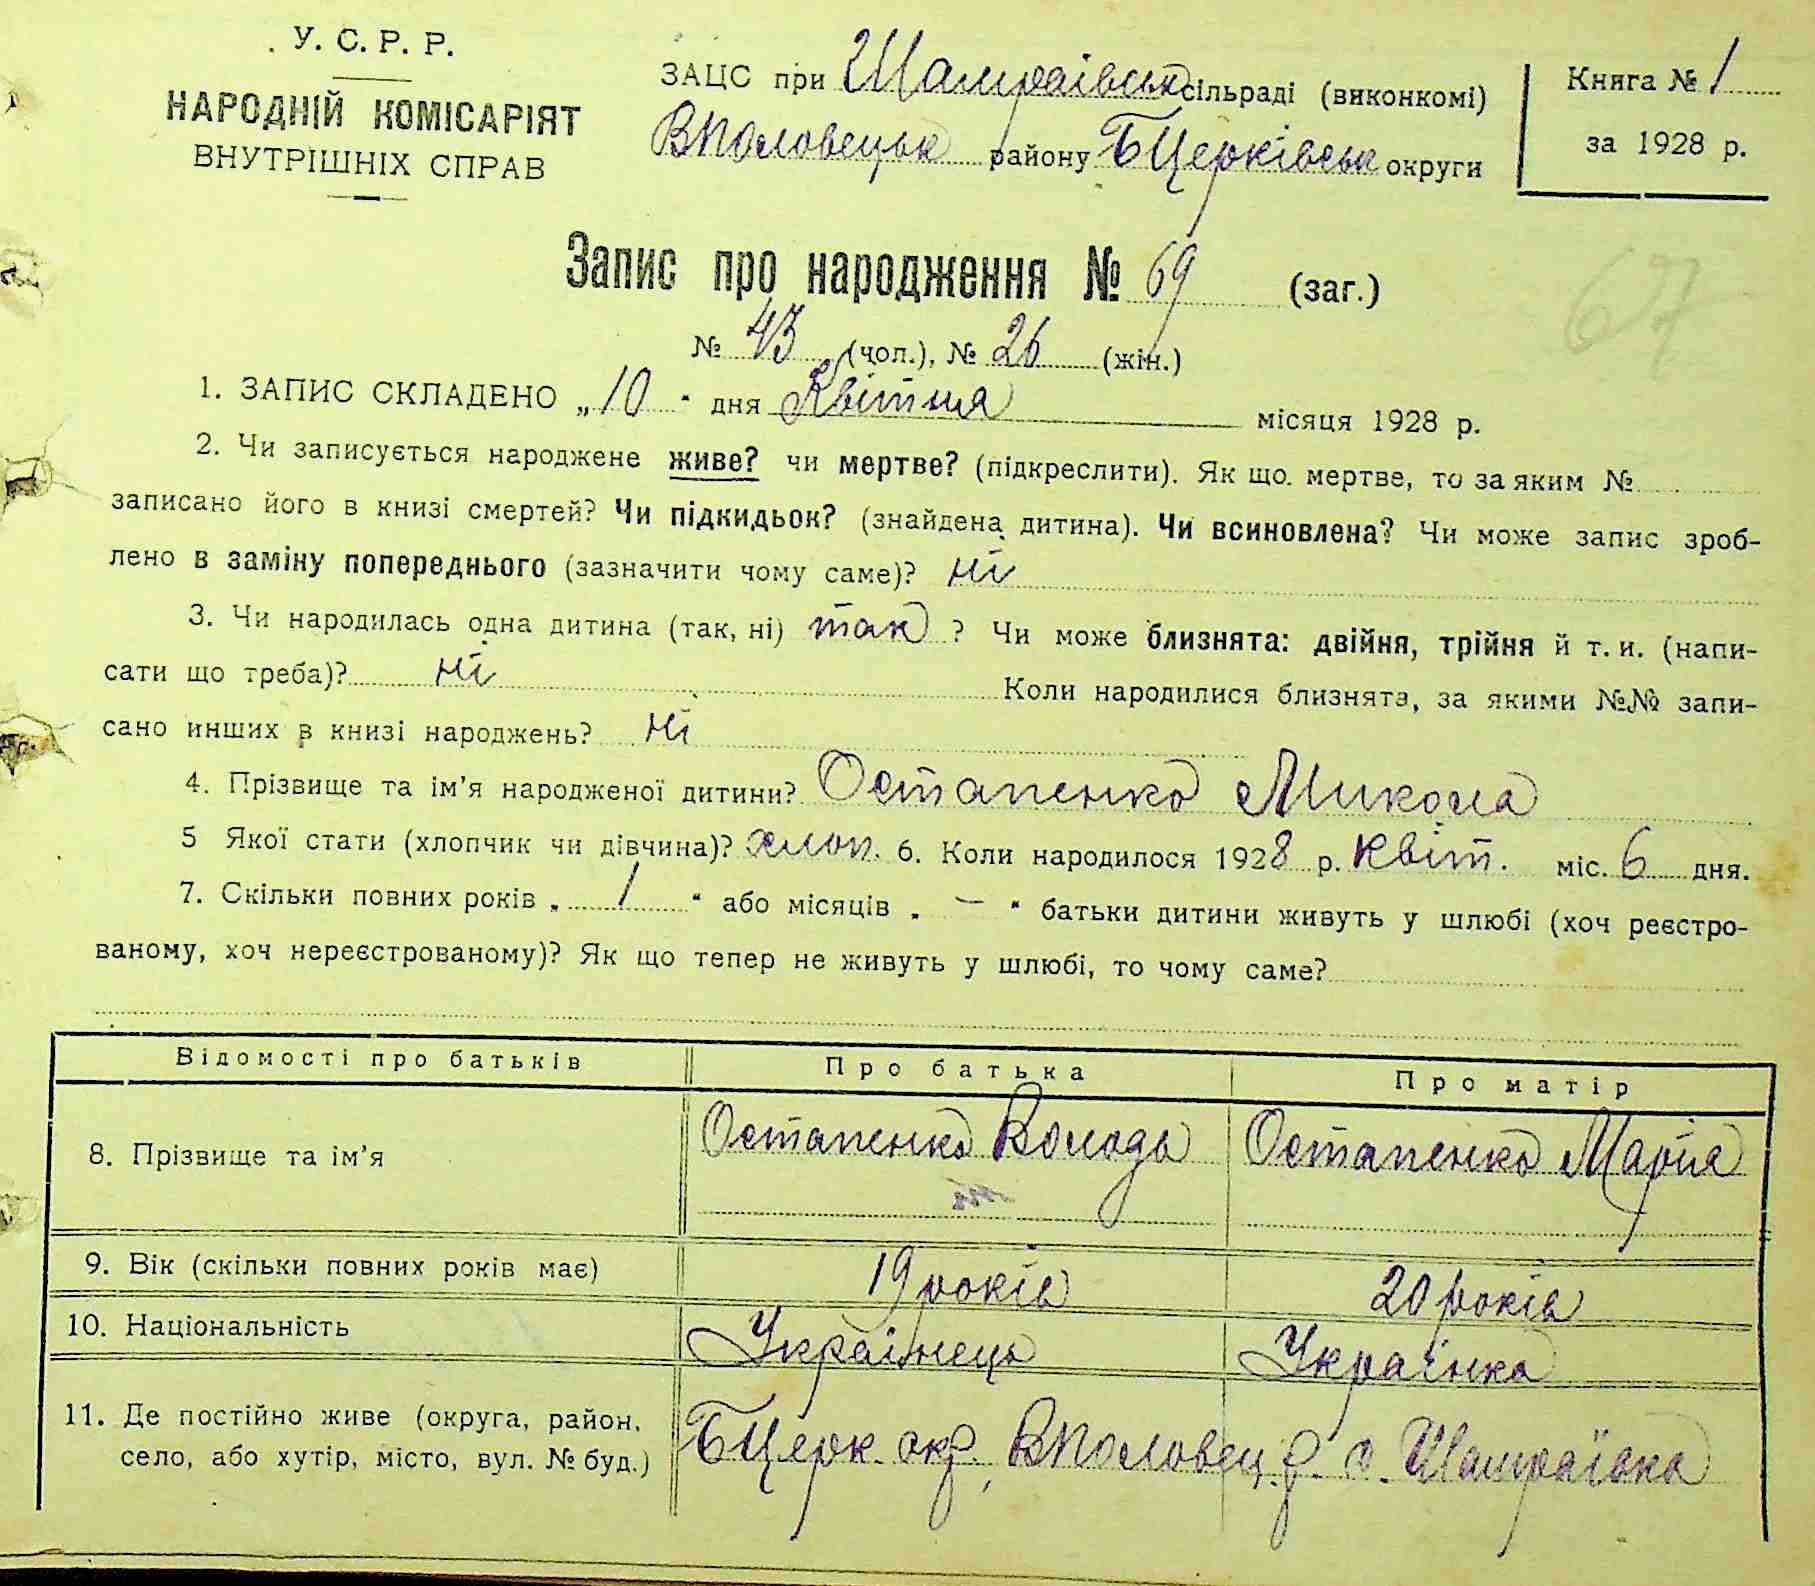 У. С. Р. Р.
НАРОДНІЙ КОМІСАРІЯТ
ВНУТРІШНІХ СПРАВ
ЗАЦС при Шамраївськ сільраді (виконкомі)
ВПоловецьк району БЦерківськ округи
Книга № 1
за 1928 р.
Запис про народження № 69 (заг.)
67
№ 43 (чол.), № 26 (жін.)
1. ЗАПИС СКЛАДЕНО „10“ дня Квітня місяця 1928 р.
2. Чи записується народжене живе? чи мертве? (підкреслити). Як що. мертве, то за яким №
записано його в книзі смертей? Чи підкидьок? (знайдена дитина). Чи всиновлена? Чи може запис зроб-
лено в заміну попереднього (зазначити чому саме)? ні
3. Чи народилась одна дитина (так, ні) так ? Чи може близнята: двійня, трійня й т. и. (напи-
сати що треба)? ні Коли народилися близнята, за якими №№ запи-
сано инших в книзі народжень? ні
4. Прізвище та ім'я народженої дитини? Остапенко Микола
5 Якої стати (хлопчик чи дівчина)? хлоп. 6. Коли народилося 1928 р. Квіт. міс. 6 дня.
7. Скільки повних років „ 1 “ або місяців „ — “ батьки дитини живуть у шлюбі (хоч реєстро-
ваному, хоч нереєстрованому)? Як що тепер не живуть у шлюбі, то чому саме?
Відомості про батьків Про батька Про матір
8. Прізвище та ім'я Остапенко Володь Остапенко Марія
9. Вік (скільки повних років має) 19 років 20 років
10. Національність Українець Українка
11. Де постійно живе (округа, район,
село, або хутір, місто, вул. № буд.) БЦерк. окр., ВПоловец. р. с. Шамраївка